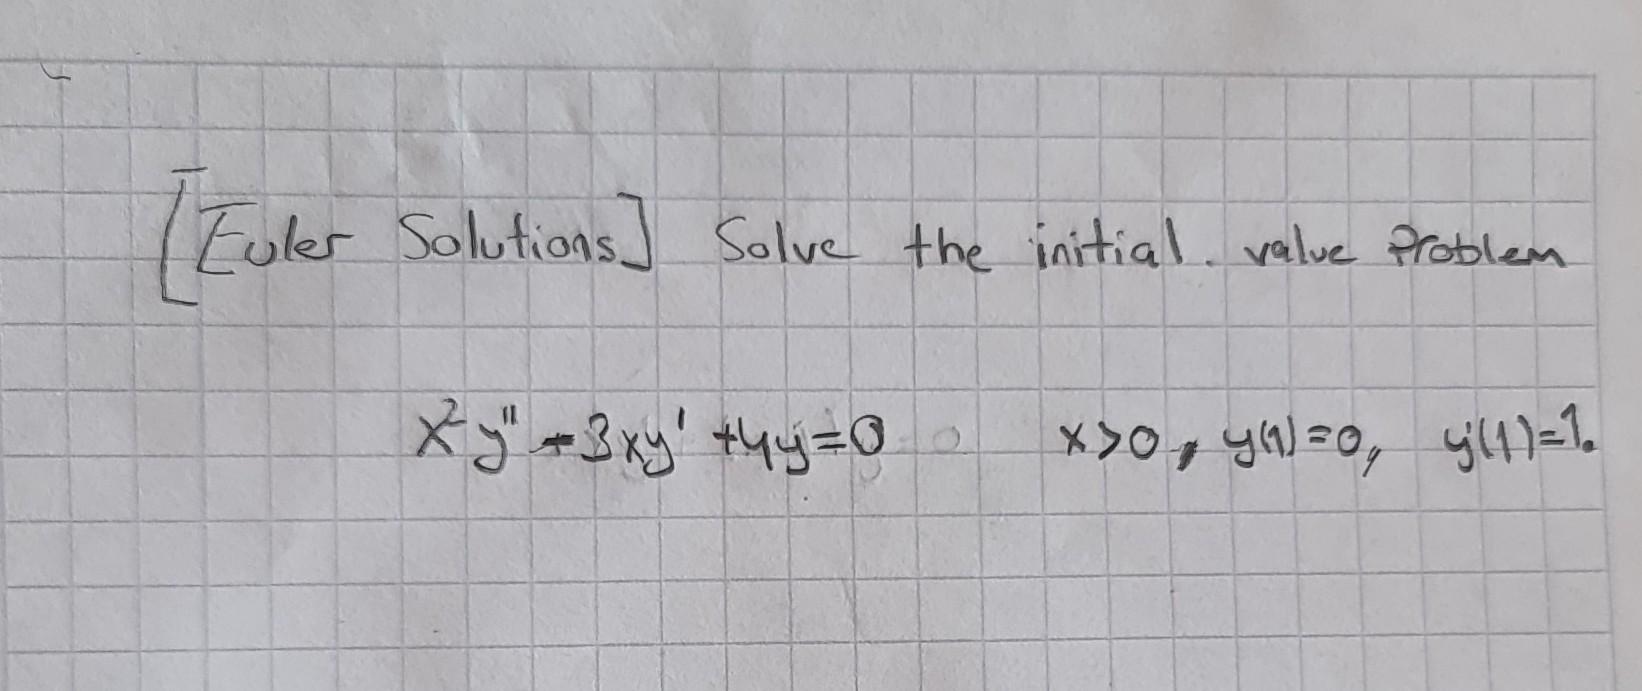 [Euler Solutions] Solve the initial. value Problem
x²y" - 3xy' + 4y = 0 x > 0, y(1) = 0, y'(1) = 1.